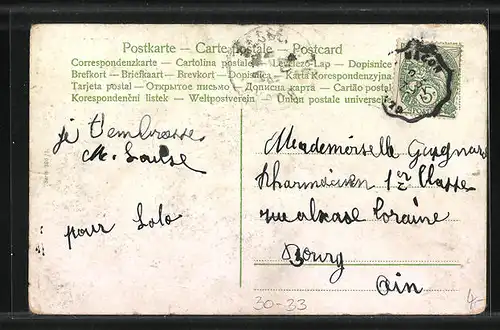 Postkarte – Carte postale – Postcard
Correspondenzkarte – Cartolina postale – Levelező-Lap – Dopisnice
Brefkort – Briefkaart – Brevkort – Dopisnica – Karta Korespondenzyjna
Tarjeta postal – Открытое письмо – Дописна карта – Cartão postal
Korespondenční listek – Weltpostverein – Union postale universelle
MACON
5
je t'embrasse
M. Louise
pour Lolo
Mademoiselle
Pharmacien 1er Classe
rue alsace Loraine
Bourg
Ain
30-33
4-